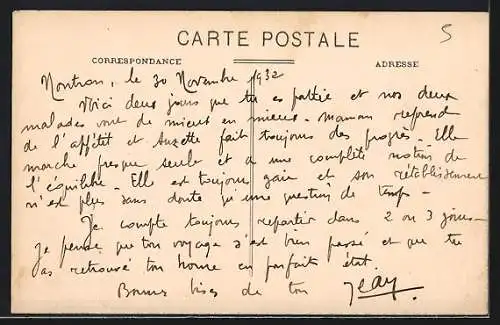 5
CARTE POSTALE
CORRESPONDANCE
ADRESSE
Nontron, le 30 Novembre 1932
Voici deux jours que tu es partie et nos deux
malades vont de mieux en mieux. maman reprend
de l'appétit et Suzette fait toujours des progrès. Elle
marche presque seule et a une complète notion de
l'équilibre. Elle est toujours gaie et son rétablissement
n'est plus sans doute qu'une question de temps.
Je compte toujours repartir dans 2 ou 3 jours.
Je pense que ton voyage s'est bien passé et que tu
as retrouvé ton home en parfait état.
Bonnes bises de ton Jean.